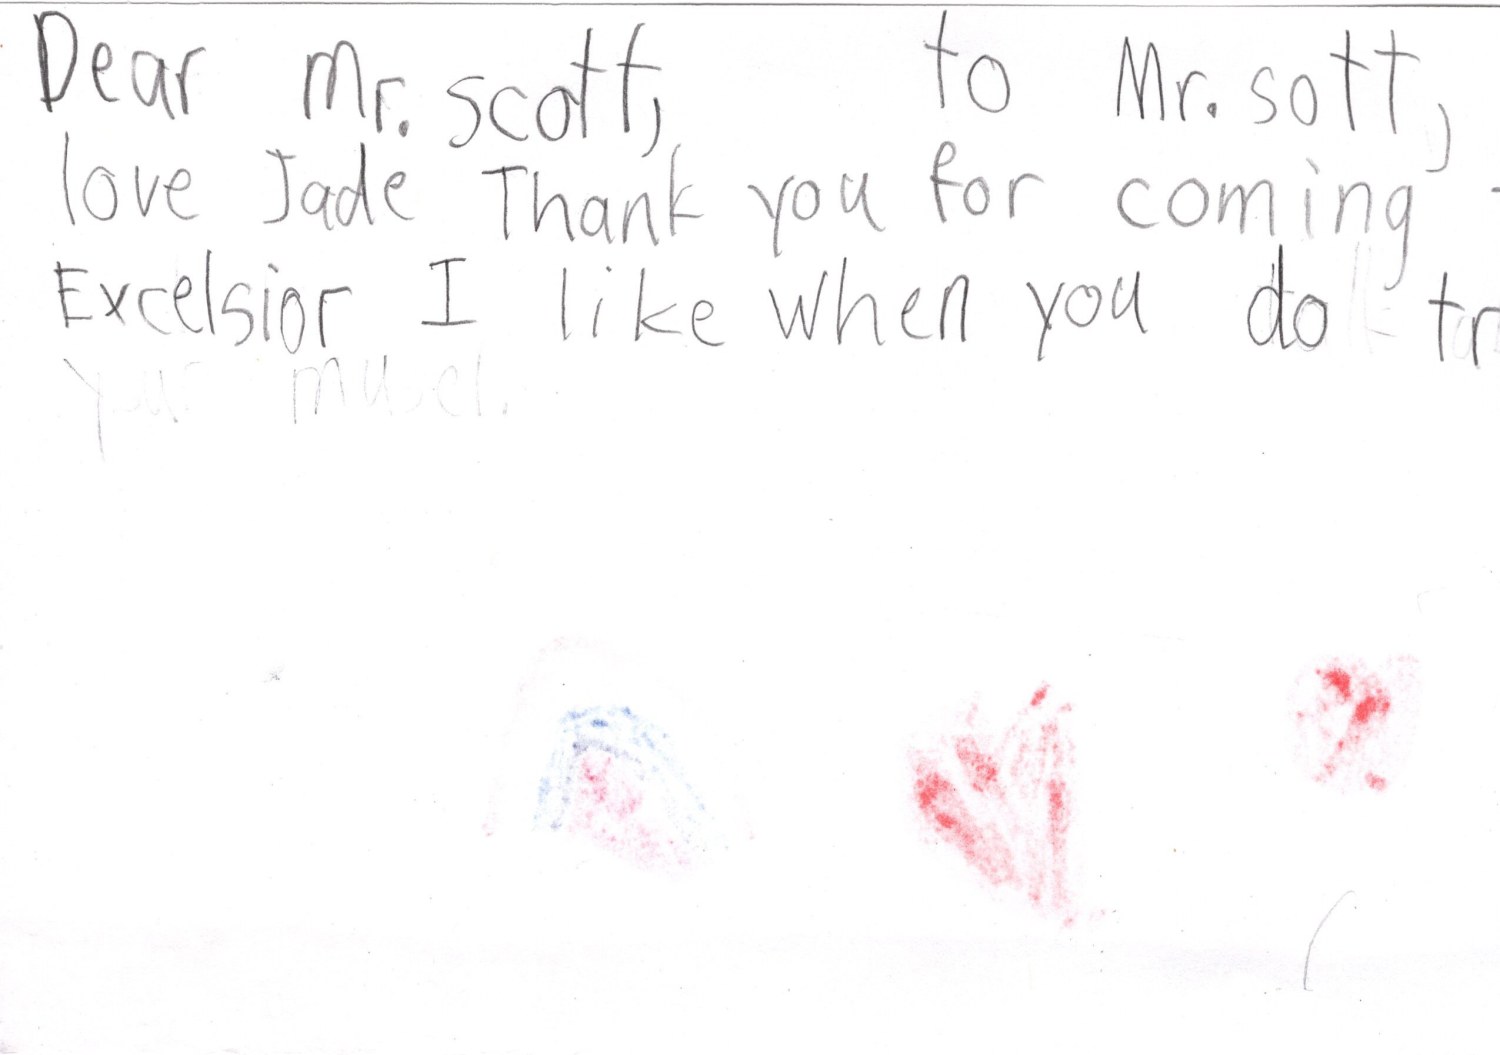 Dear Mr. scott, to Mr. sott,
love Jade Thank you for coming
Excelsior I like when you do tr